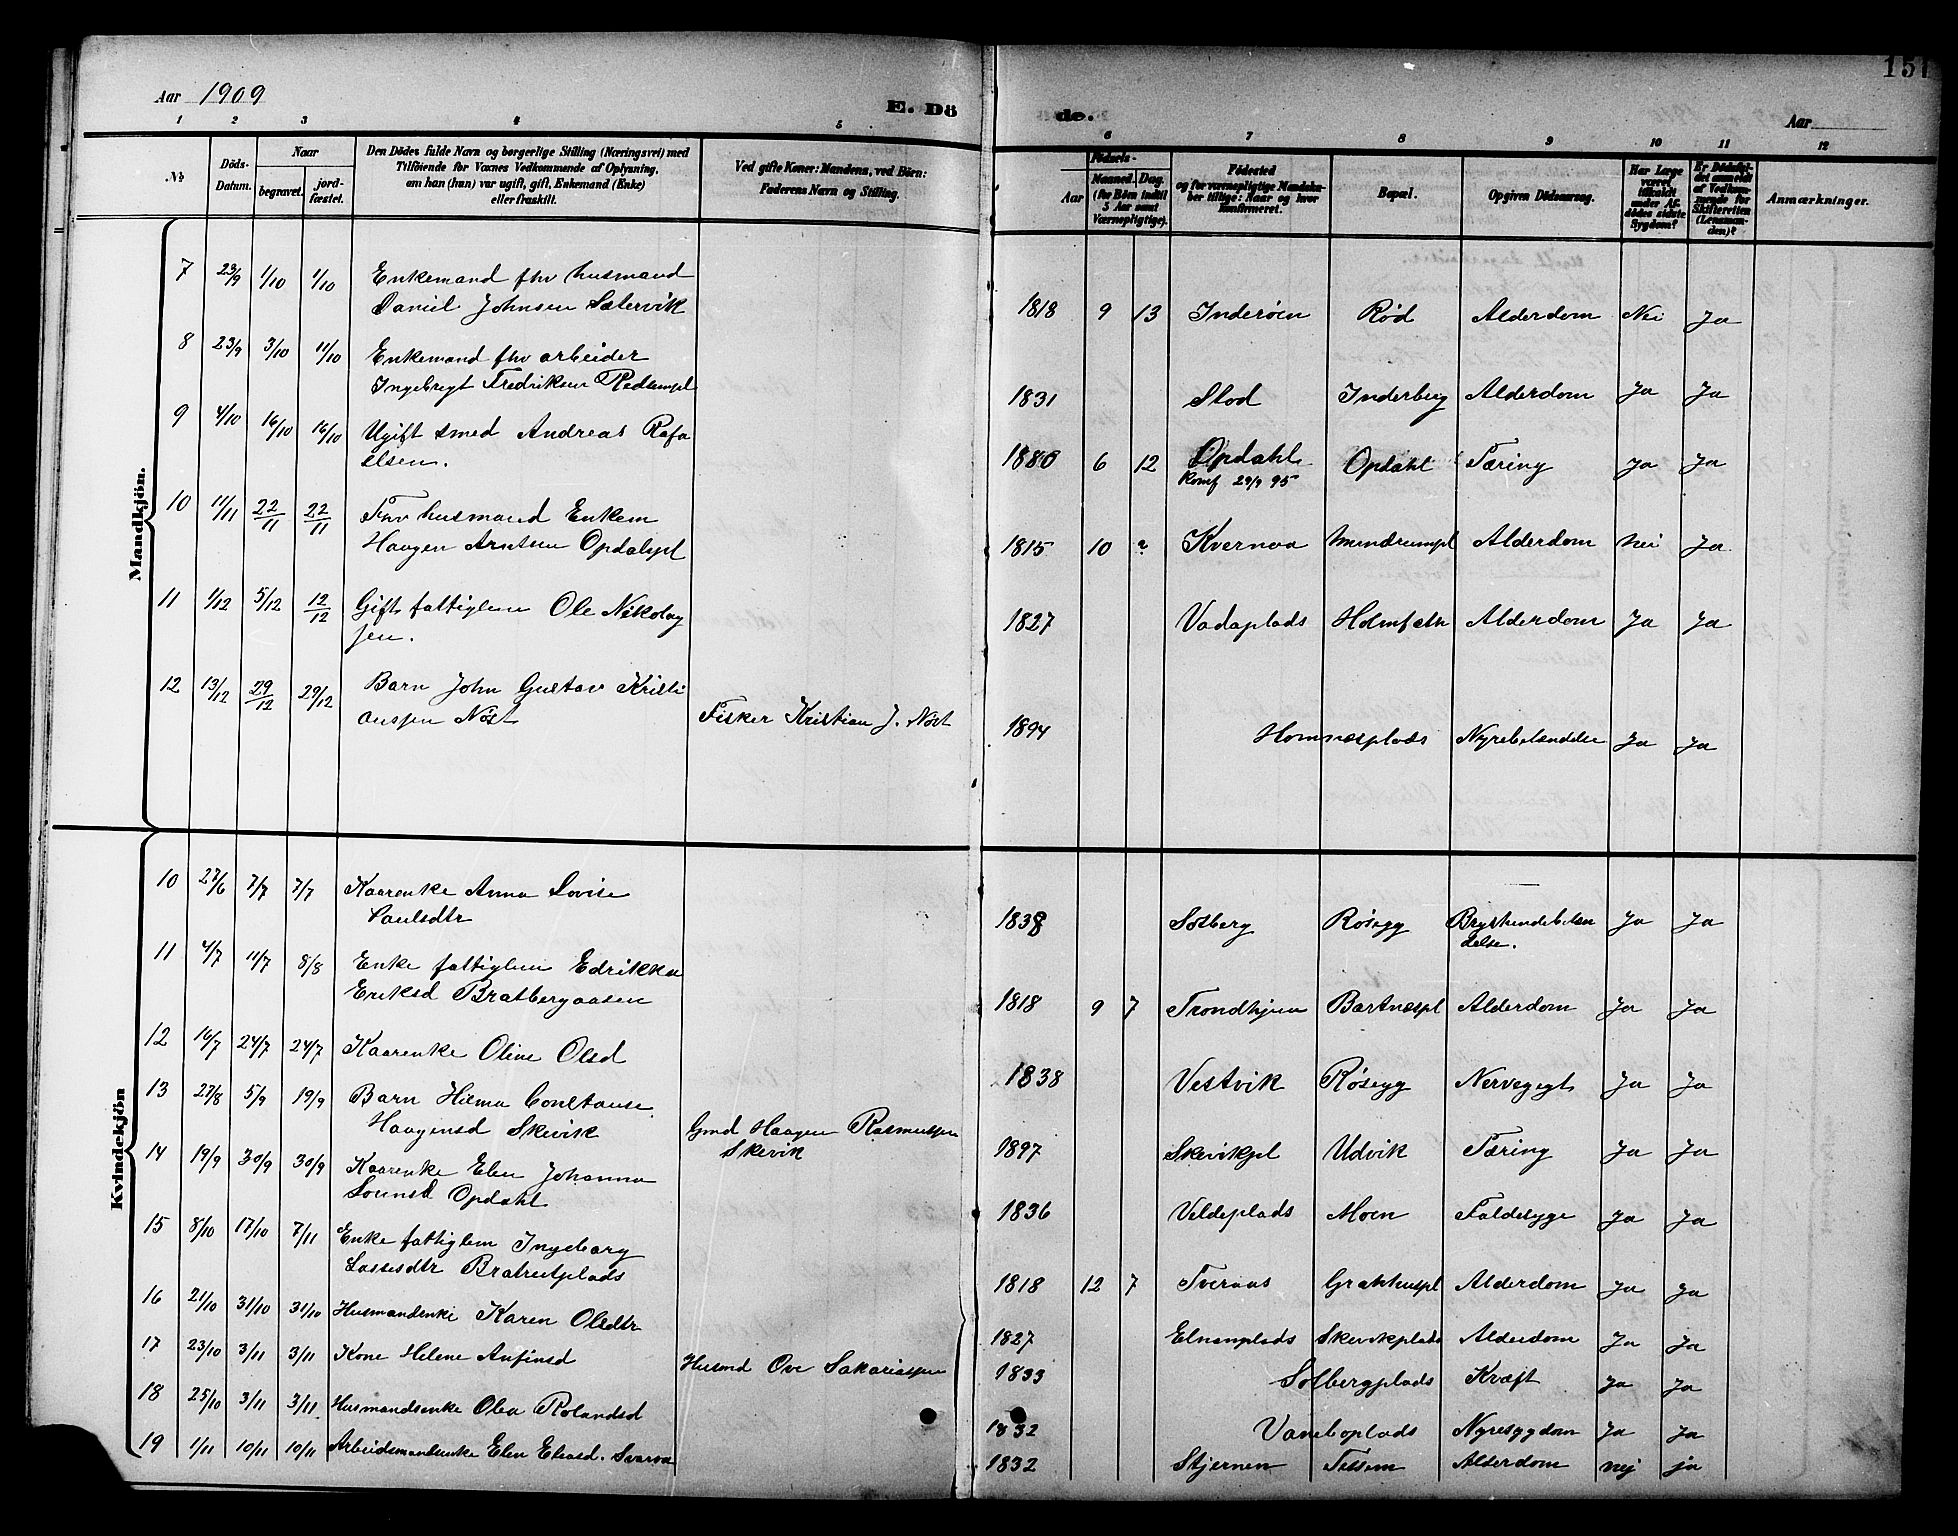 151
Aar 1909
E. Döde.
Aar
1 2 3 4 5 6 7 8 9 10 11 12
№
Döds-Datum.
Naar
begravet.
jord-fæstet.
Den Dödes fulde Navn og borgerlige Stilling (Næringsvei) med
Tilföiende for Voxnes Vedkommende af Oplysning,
om han (hun) var ugift, gift, Enkemand (Enke)
eller fraskilt.
Ved gifte Koner: Mandens, ved Börn:
Faderens Navn og Stilling.
Födsels-
Aar
Maaned. Dag.
(for Börn indtil
5 Aar samt
Værnepligtige).
Födested
og for værnepligtige Mandsko-
ber tillige: Naar og hvor
konfirmeret.
Bopæl.
Opgiven Dödsaarsag.
Har Læge
været
tilkaldt
under Af-
dödes sidste
Sygdom?
Er Dödsfal-
det anmeldt
af Vedkom-
mende for
Skifteretten
(Lensman-
den)?
Anmærkninger.
Mandkjön.
7 23/9 1/10 1/10 Enkemand fhv husmand
Daniel Johnsen Sætervik
1818 9 13 Inderøen Rød Alderdom Nei Ja
8 23/9 3/10 11/10 Enkemand fhv arbeider
Ingebrigt Fredriksen Rødsempl
1831 Stod Inderberg Alderdom Ja Ja
9 4/10 16/10 16/10 Ugift smed Andreas Rafa
elsen.
1880 6 12 Opdahl Opdahl Tæring Ja Ja
Konf 29/9 95
10 11/11 22/11 22/11 Fhv husmand Enkem
Haagen Arntsen Opdalspl
1815 10 ? Kvernaa Alderdom Nei Ja
11 1/12 5/12 12/12 Gift fattiglem Ole Nikolay
sen.
1827 Vadaplads Alderdom Ja Ja
12 13/12 29/12 29/12 Barn John Gustav Kristi
ansen Nøst Fisker Kristian J. Nøst
1894 Homnesplads Nyrebetændelse Ja Ja
Kvindekjön
10 27/6 7/7 7/7 Kaarenke Anna Lovise
Paulsdtr
1838 Solberg Røsegg Brysthindebetæn
delse. Ja Ja
11 4/7 11/7 8/8 Enke fattiglem Edrikka
Eriksd Bratbergaasen
1818 9 7 Trondhjem Bartnespl Alderdom Ja Ja
12 16/7 24/7 24/7 Kaarenke Oline Olsd
1838 Vestvik Røsegg Nervegigt Ja Ja
13 27/8 5/9 19/9 Barn Hilma Constanse
Haagensd Skevik Gmd Haagen Rasmussen
Skevik
1897 Skevikpl Udvik Tæring Ja Ja
14 19/9 30/9 30/9 Kaarenke Elen Johanna
Lornsd Opdahl
1836 Veldeplads Moen Faldesyge Ja Ja
15 8/10 17/10 7/11 Enke fattiglem Ingeborg
Lassesdtr Bratreitplads
1818 12 7 Tveraas Alderdom Ja Ja
16 21/10 31/10 31/10 Husmandenke Karen Olsdtr
1827 Elnanplads Skevikplads Alderdom Ja Ja
17 23/10 3/11 3/11 Kone Helene Anfinsd Husmd Ove Sakariassen
1833 Solbergplads Kræft Ja Ja
18 25/10 3/11 3/11 Husmandsenke Olea Rolandsd
1832 Vaneboplads Nyresygdom Ja Ja
19 1/11 10/11 10/11 Arbeidsmandsenke Elen Eliasd. Svarva
1832 Stjernen Tessem Alderdom nej ja